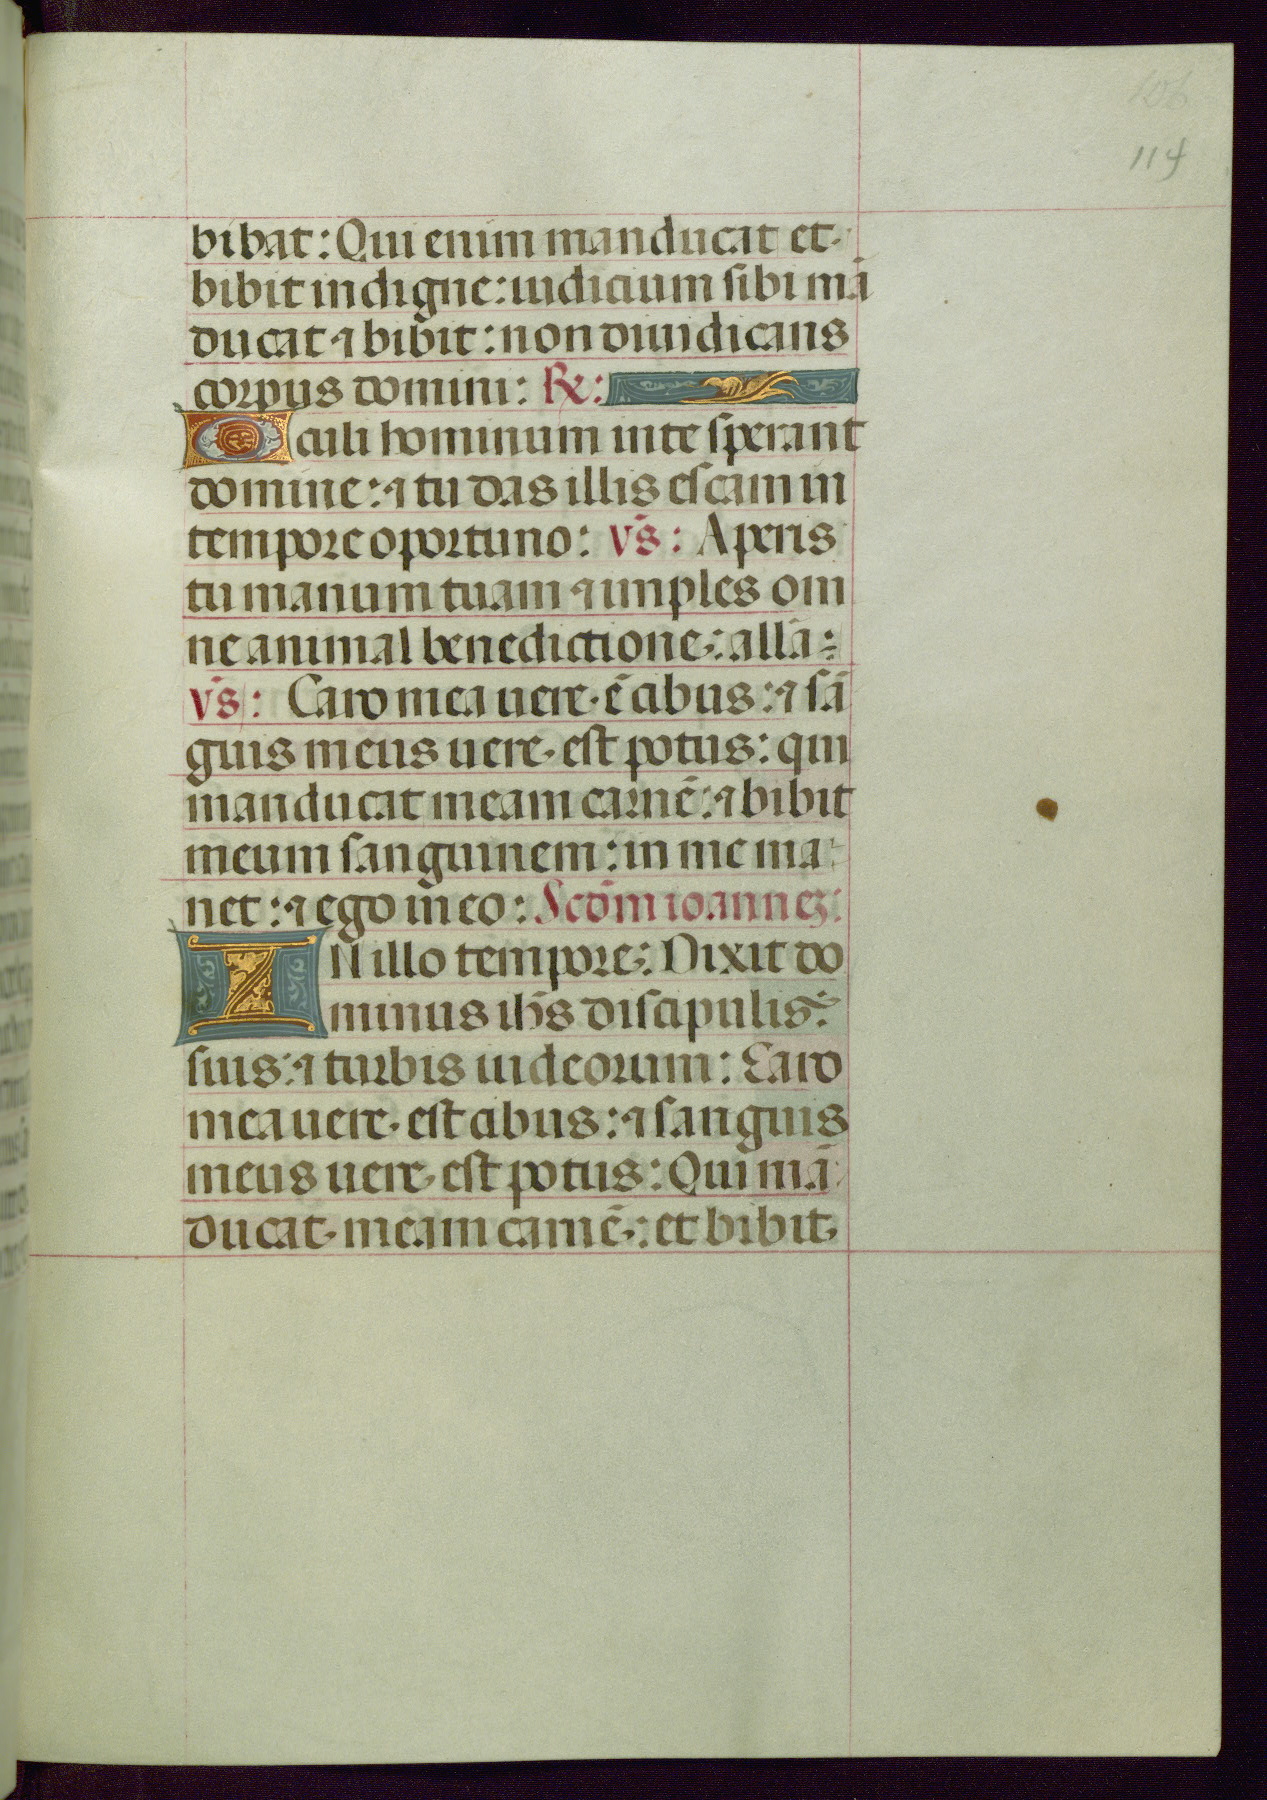 114
bibat: Qui enim manducat et
bibit indigne: iudicium sibi mā
ducat ⁊ bibit: non diiudicans
corpus domini: ℞:
Oculi hominum in te sperant
domine: ⁊ tu das illis escam in
tempore oportuno: vs̄: Aperis
tu manum tuam ⁊ imples om
ne animal benedictione: allā:
vs̄: Caro mea uere ē cibus: ⁊ sā
guis meus uere est potus: qui
manducat meam carnē: ⁊ bibit
meum sanguinem: in me ma
net: ⁊ ego in eo: Scd̄m ioannez:
IN illo tempore: Dixit do
minus ih̄s discipulis
suis: ⁊ turbis iudeorum: Caro
mea uere est cibus: ⁊ sanguis
meus uere est potus: Qui mā
ducat meam carnē: et bibit